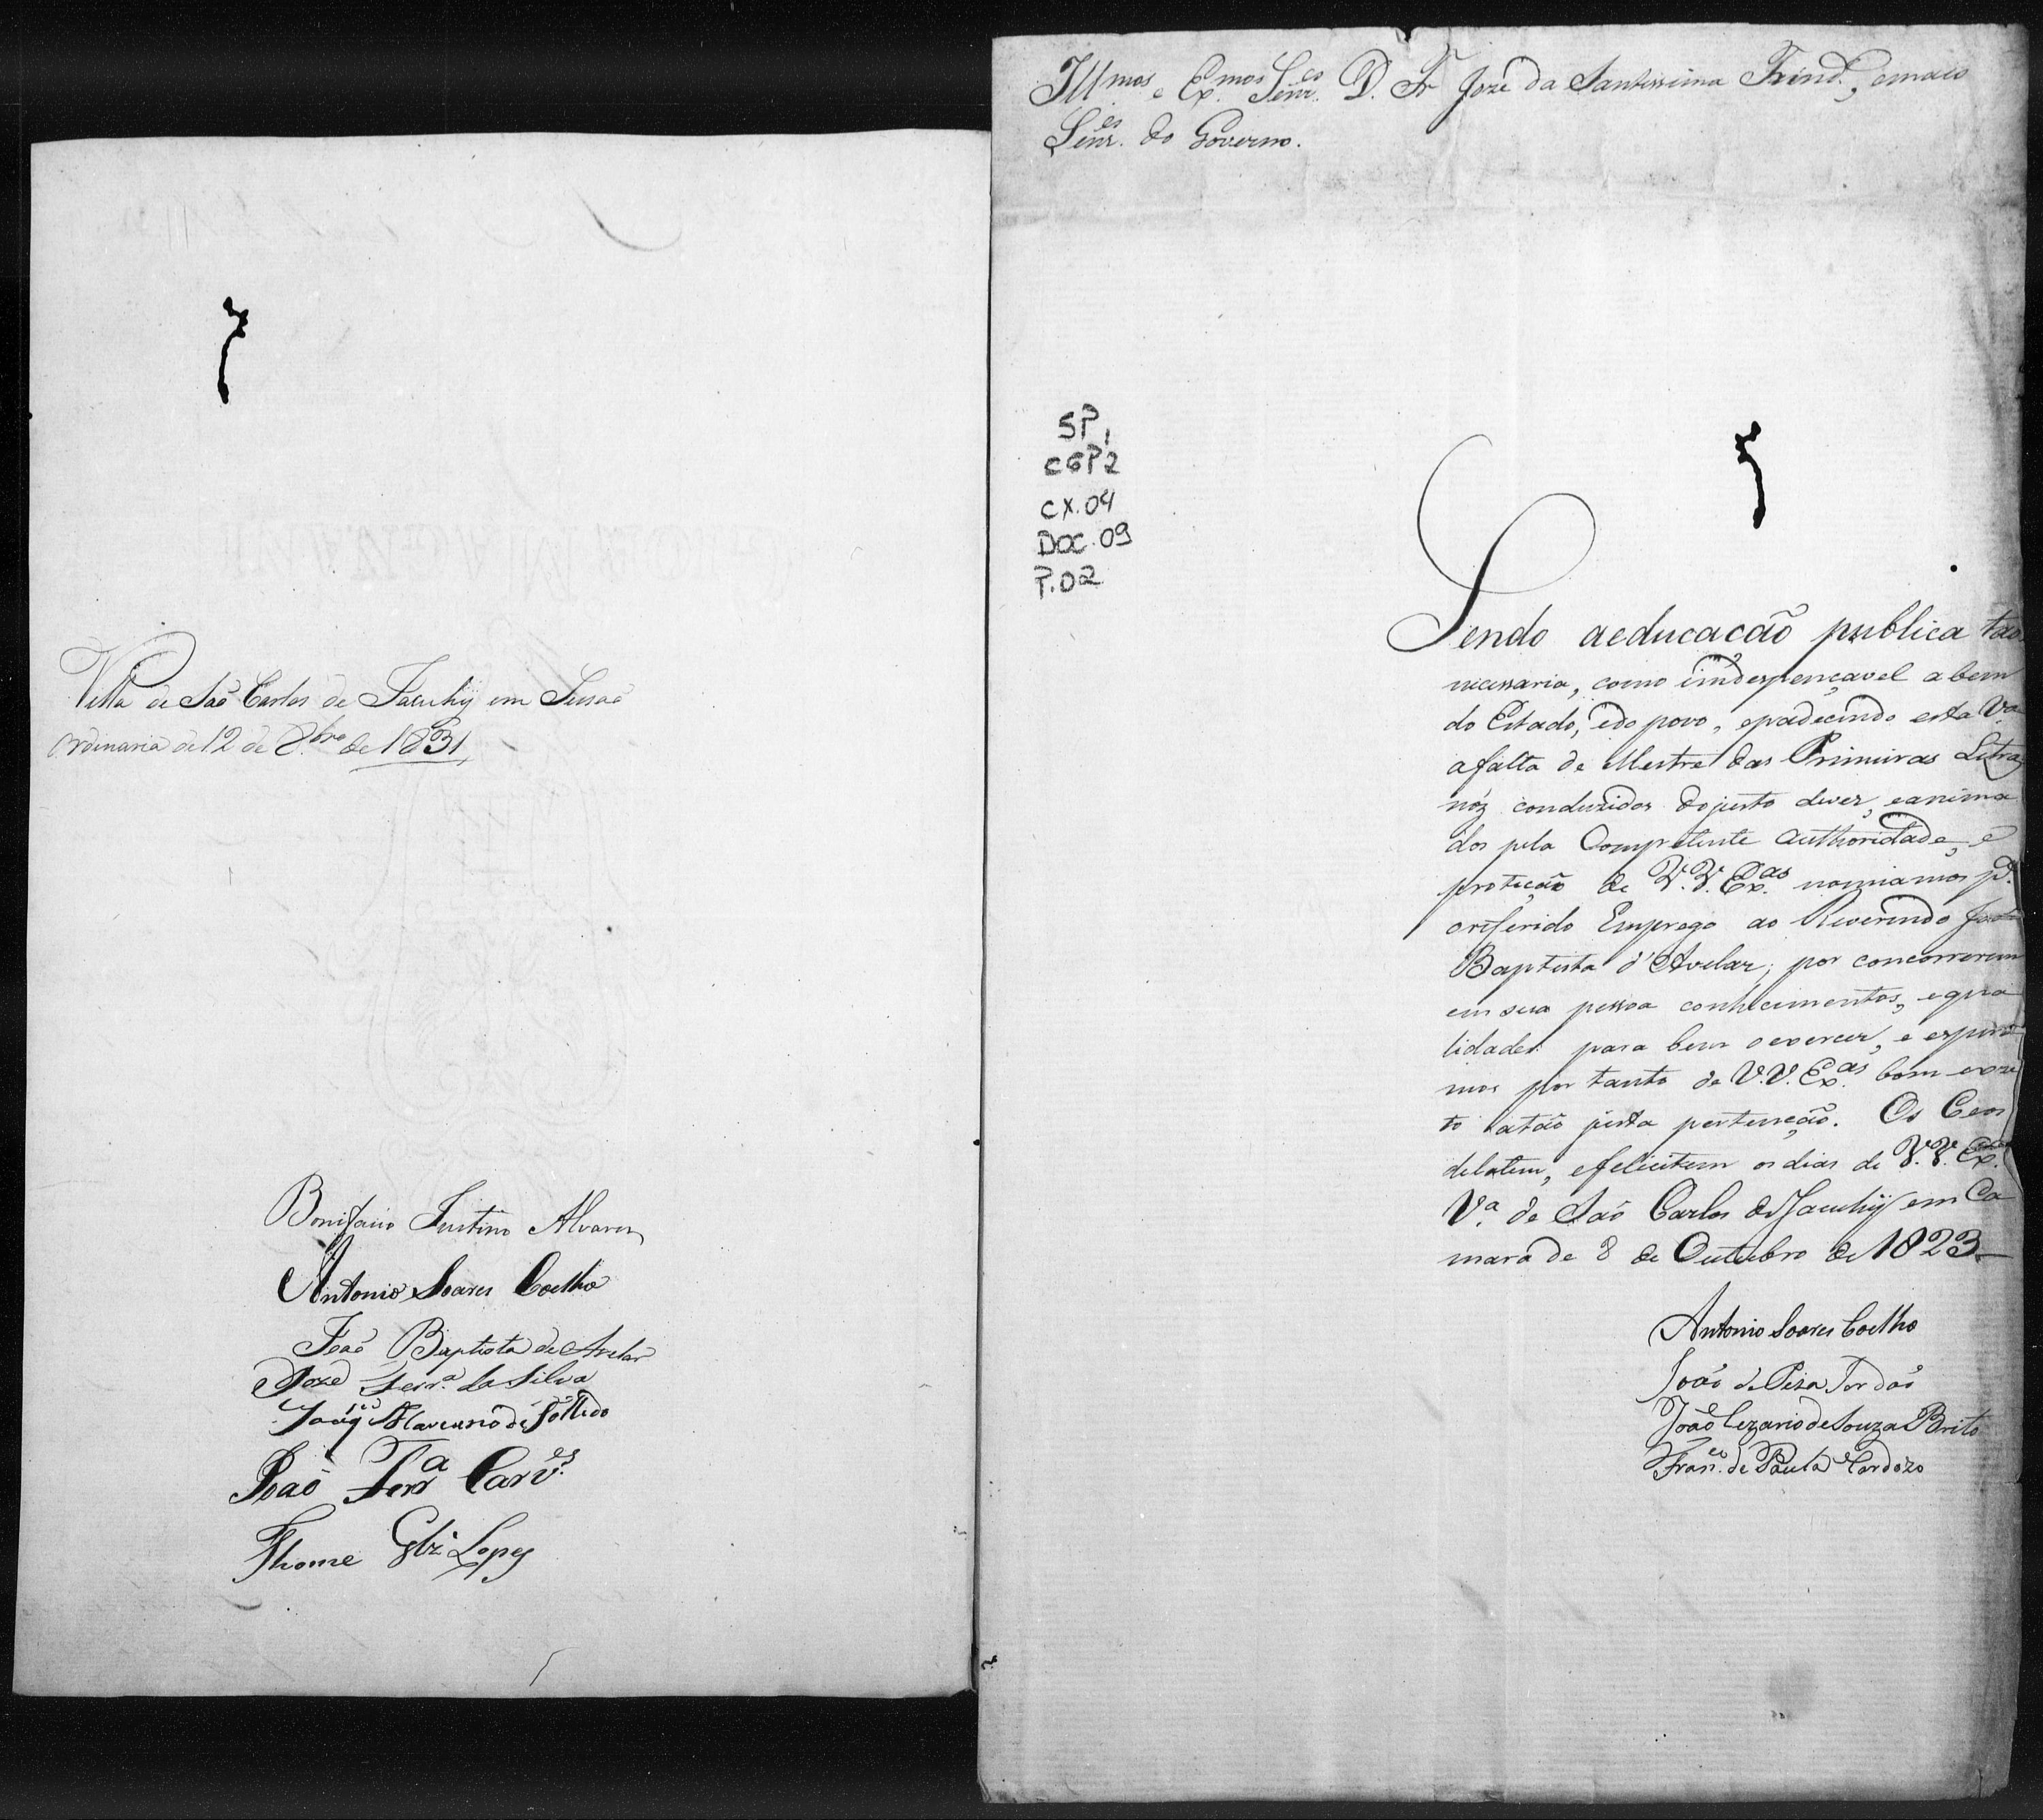 Villa de São Carlos de Jacuhy em Sessaõ
Ordinaria de 12 de 8.bro de 1831
Bonifacio Justino Alvares
Antonio Soares Coelho
Joaõ Baptista de Avelar
Jozé Ferr.ª da Silva
Joaq.m Marianno de Tolledo
Joaõ Ferrª Carv.
Thome Glz Lopes
Illmos e Exmos Senr.es D. Fr Joze da Santissima Trind.e, emais
Senr.es do Governo.
SP1
CGP2
CX.04
DOC.09
P.02
Sendo aeducacaõ publica tao
necessaria, como indespençavel abem
do Estado, edo povo, epadecendo esta V.ª
afalta de Mestre das Primeiras Letras
nóz conduzidos dojusto dever, eanima
dos pela Competente authoridade, e
proteção de V.V. Ex.as nomiamos p.ª
oreferido Emprego ao Reverendo João
Baptista d'Avelar, por concorrerem
em sua pessoa conhecimentos, equa
lidades para bem oexercer, e espera
mos por tanto de V.V. Ex.as bom exzi
to atão justa pertenção. Os Ceos
delatem, efelicitem os dias de V.V. Ex.as
V.ª de Saõ Carlos de Jacuhy em Ca
mara de 8 de Outubro de 1823
Antonio Soares Coelho
João de Jordaõ
João Cezario de Souza Brito
Fran.co de Paula Cardozo